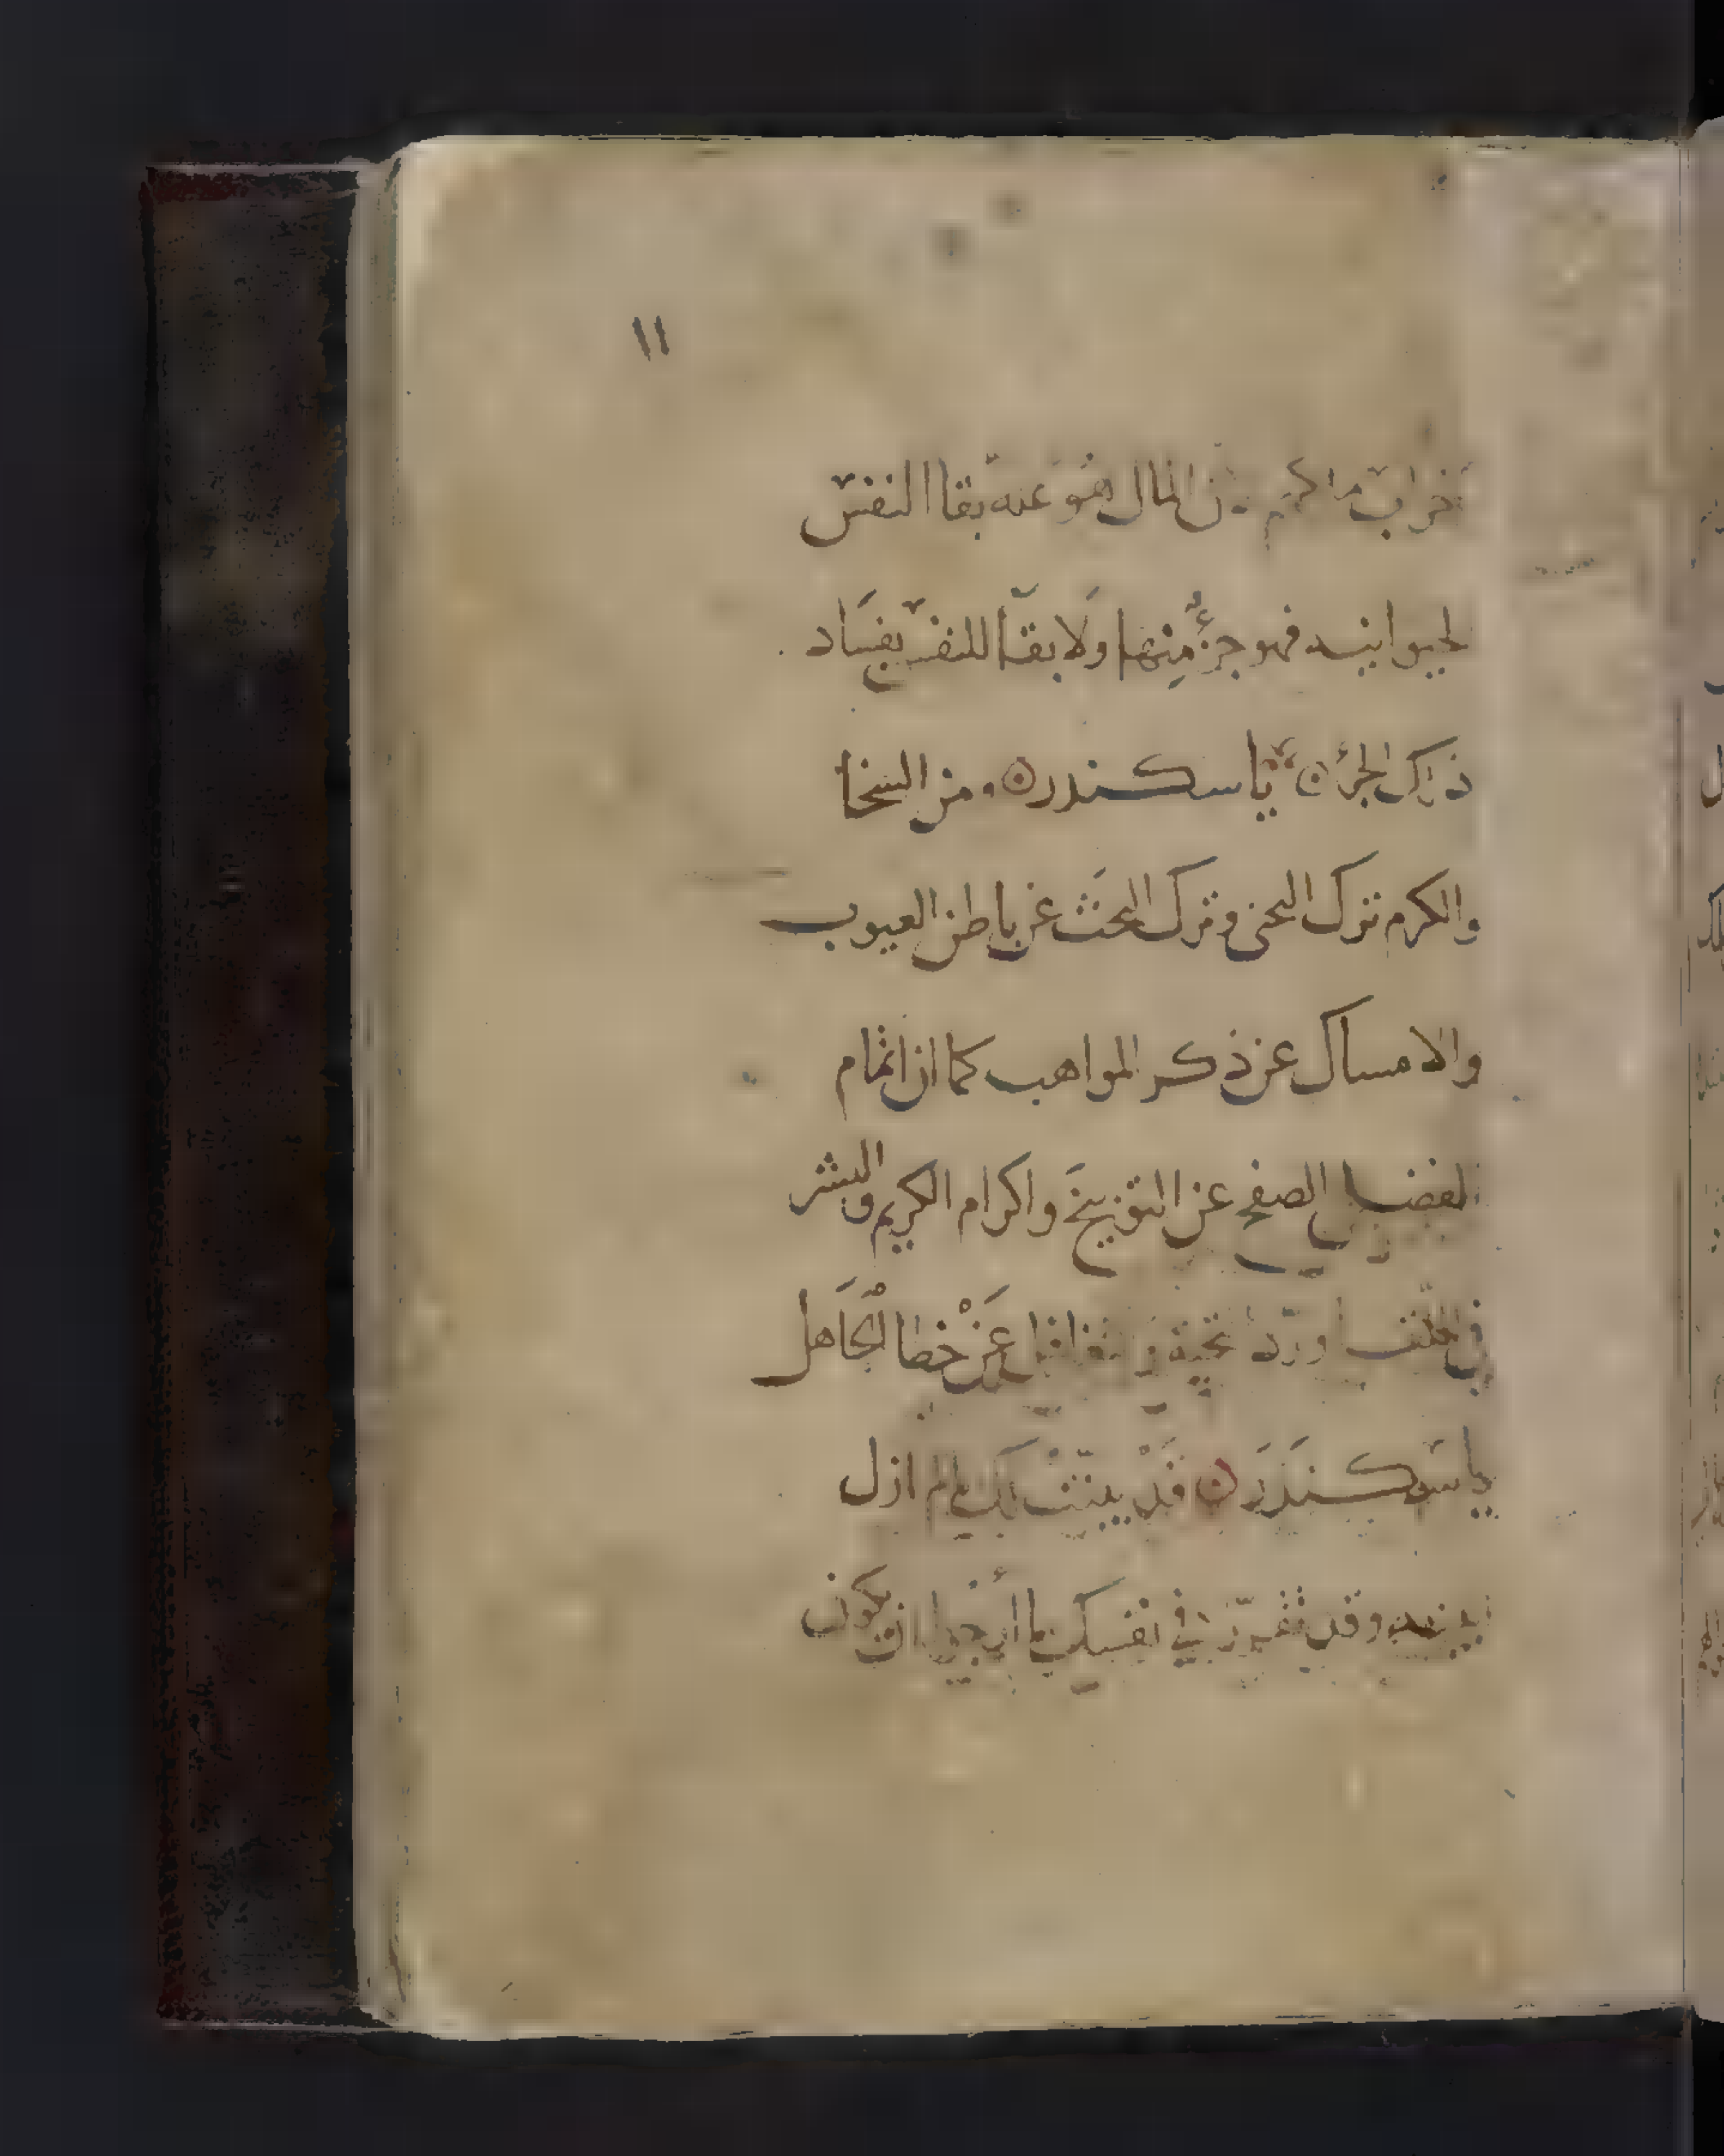 ١١
خراب ما كرم لان المال هو عله بقا النفس
الحيوانيه فهو جزء منها ولا بقا للنفس بفساد
ذلك الجزء يا سكندر ومن السخا
والكرم ترك التجنى وترك البحث عن باطن العيوب
والامساك عن ذكر المواهب كما ان اتمام
الفضل الصفح عن التوبيخ واكرام الكريم والبشر
في ورد تحية والتغافل عن خطا الجاهل
يا سكندر قد بينت لك ما لم ازل
وقد في نفسك ما أرجوا ان يكون